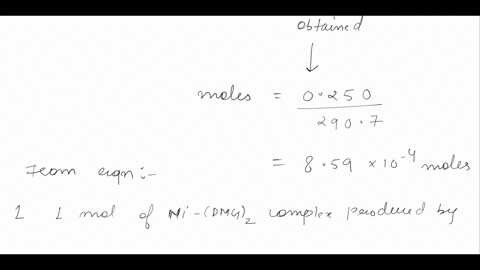 obtained
moles = 0.250
290.7
= 8.59 × 10⁻⁴ moles
From eqn:-
1 1 mol of Ni-(DMG)₂ complex produced by